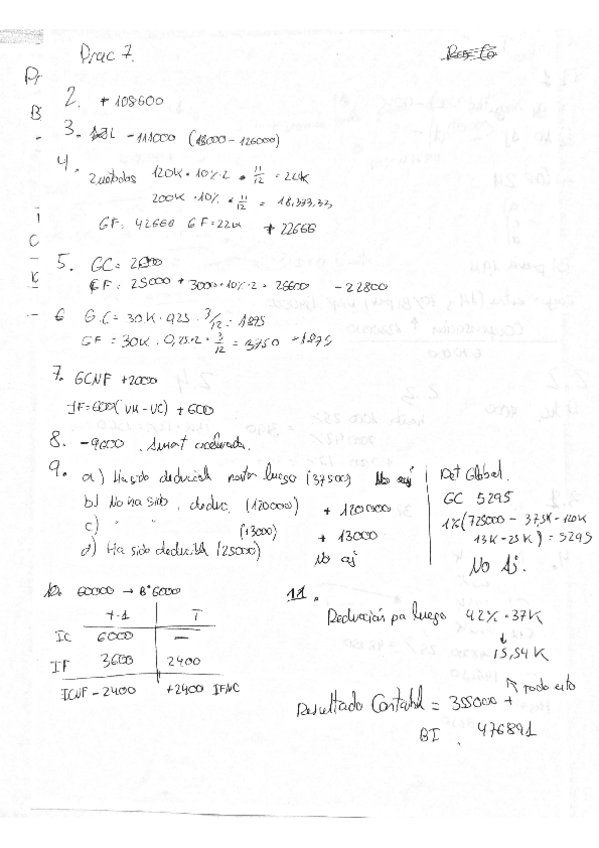 Prac 7.
Pr
B
2. + 108600
3. - 111000 (15000 - 126000)
4. 2 unidades 120K · 10% · 2 · 11/12 = 22K
200K · 10% · 11/12 = 18.333,33
GF: 42666 GF = 22K + 22666
i
C
5. GC =
GF: 25000 + 3000 · 10% · 2 = 26600 - 22800
6 G.C = 30K · 0,25 · 3/12 = 1875
GF = 30K · 0,25 · 2 · 3/12 = 3750 - 1875
7. GCNF + 2000
IF = 600 (VK - VC) + 600
8. - 9600 . Amort acelerada.
9. a) Ha sido deducible luego (37500) No aj
b) No ha sido deduc. (120000) + 120000
c) " " (13000) + 13000
d) Ha sido deducible (25000) No aj
Det Global.
GC 5295
1% (725000 - 37,5K - 120K
13K - 25K) = 5295
No Aj.
10. 60000 → Bº 6000
t-1 T
IC 6000 —
IF 3600 2400
ICNF - 2400 + 2400 IFNC
11.
Deducción luego 42% · 37K
↓
15,54K
Resultado Contable = 355000 + todo esto
BI . 476891